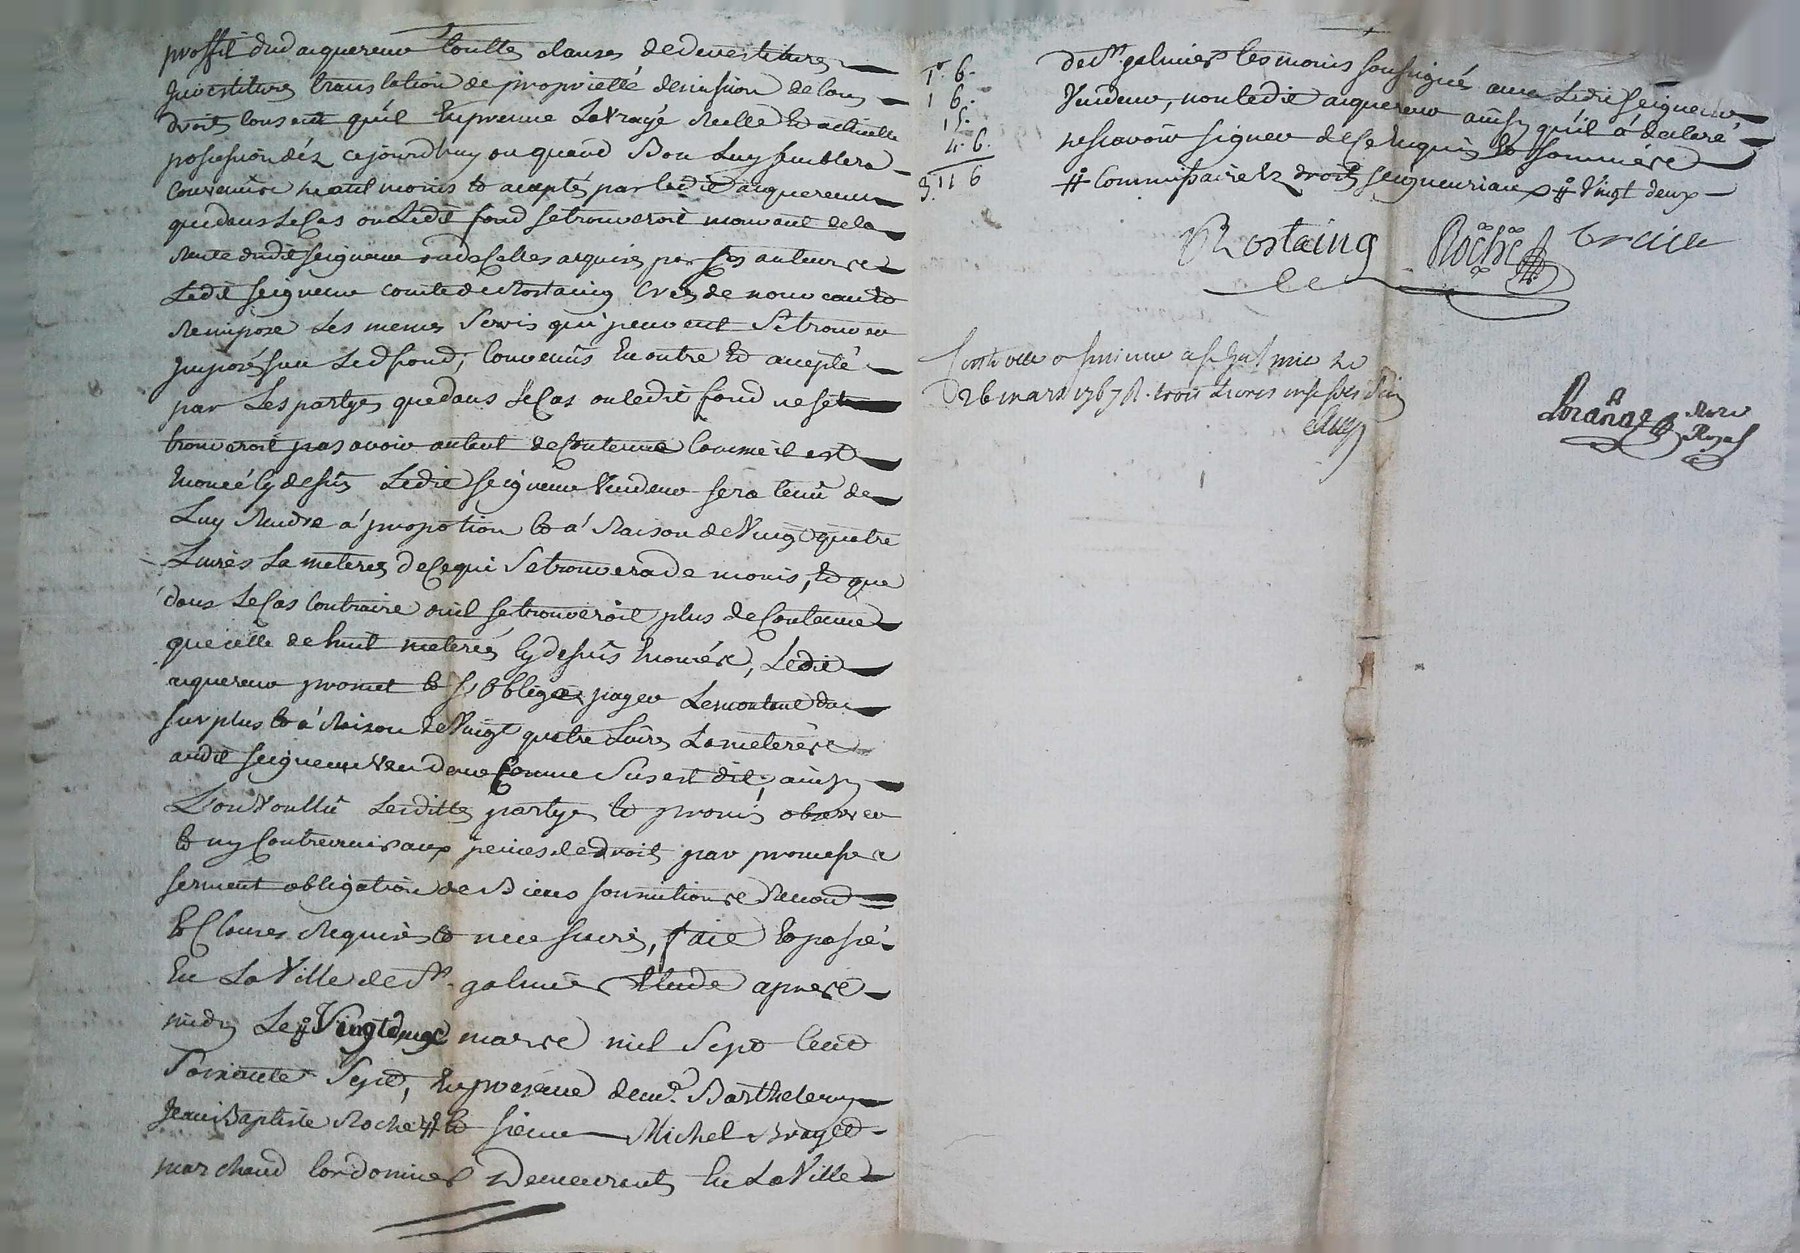 proffit dud aquereur touttes clauses de devestitures
Investitures translation de proprietté demission de tous
droits consent qu'il En prenne La vraÿe Reelle Et actuelle
posession déz cejourdhuy ou quand Bon Luy semblera
Convenu neatmoins Et acepté par Ledit aquereur
que dans Le Cas ou Ledit fond se trouveroit mouvant de la
Rente dudit seigneur ou de Celles acquises par ses auteurs
Ledit seigneur comte de Rostaing Crée de nouveau Et
Reimpose Les memes Servis qui peuvent Se trouver
Imposés sur Led fond; Convenûs En outre Et acepté
par Les partyes que dans Le Cas ou ledit fond ne se
trouveroit pas avoir autant de Contenue Comme il est
Enoncé Cy dessus Ledit seigneur Vendeur sera tenû de
Luy Rendre a' propotion Et a' Raison de Vingt quatre
Livres La meterée de Ce qui Se trouvera de moins, Et que
dans Le Cas Contraire ou il se trouveroit plus de Contenue
que celle de huit meterées Cy dessus Enoncée, Ledit
aquereur promet Et s'Oblige payer Le montant du
surplus Et a' Raison de Vingt quatre Livres La meterée
audit seigneur Vendeur Comme Sus est dit, ainsy
L'ont Voullû Lesdittes partyes Et promis observer
Et ny Contrevenir aux peines de droit par promesse
serment obligation de Biens soumitions Renond
Et Clauses Requises Et necessaires, fait Et passé
En La Ville de St. galmier Etude apres
midy Le # Vingt deux mars mil Sept Cent
Soixante Sept, En presence de mr. Barthelemy
Jean Baptiste Roche # Et sieur Michel Brayet
marchand Cordonnier Demeurants En La Ville
de St. galmier temoins soussignés avec Ledit seigneur
Vendeur, non ledit aquereur ainsy qu'il a' declaré
ne scavoir signer de Ce Enquis Et sommé
# Commissaire Ez droits seigneuriaux # Vingt deux
1. 6.
1 6.
15.
4. 6.
3. 11 6
Rostaing Roche
Controllé a St galmier le
26 mars 1767 R. trois Livres
Notre
Royal